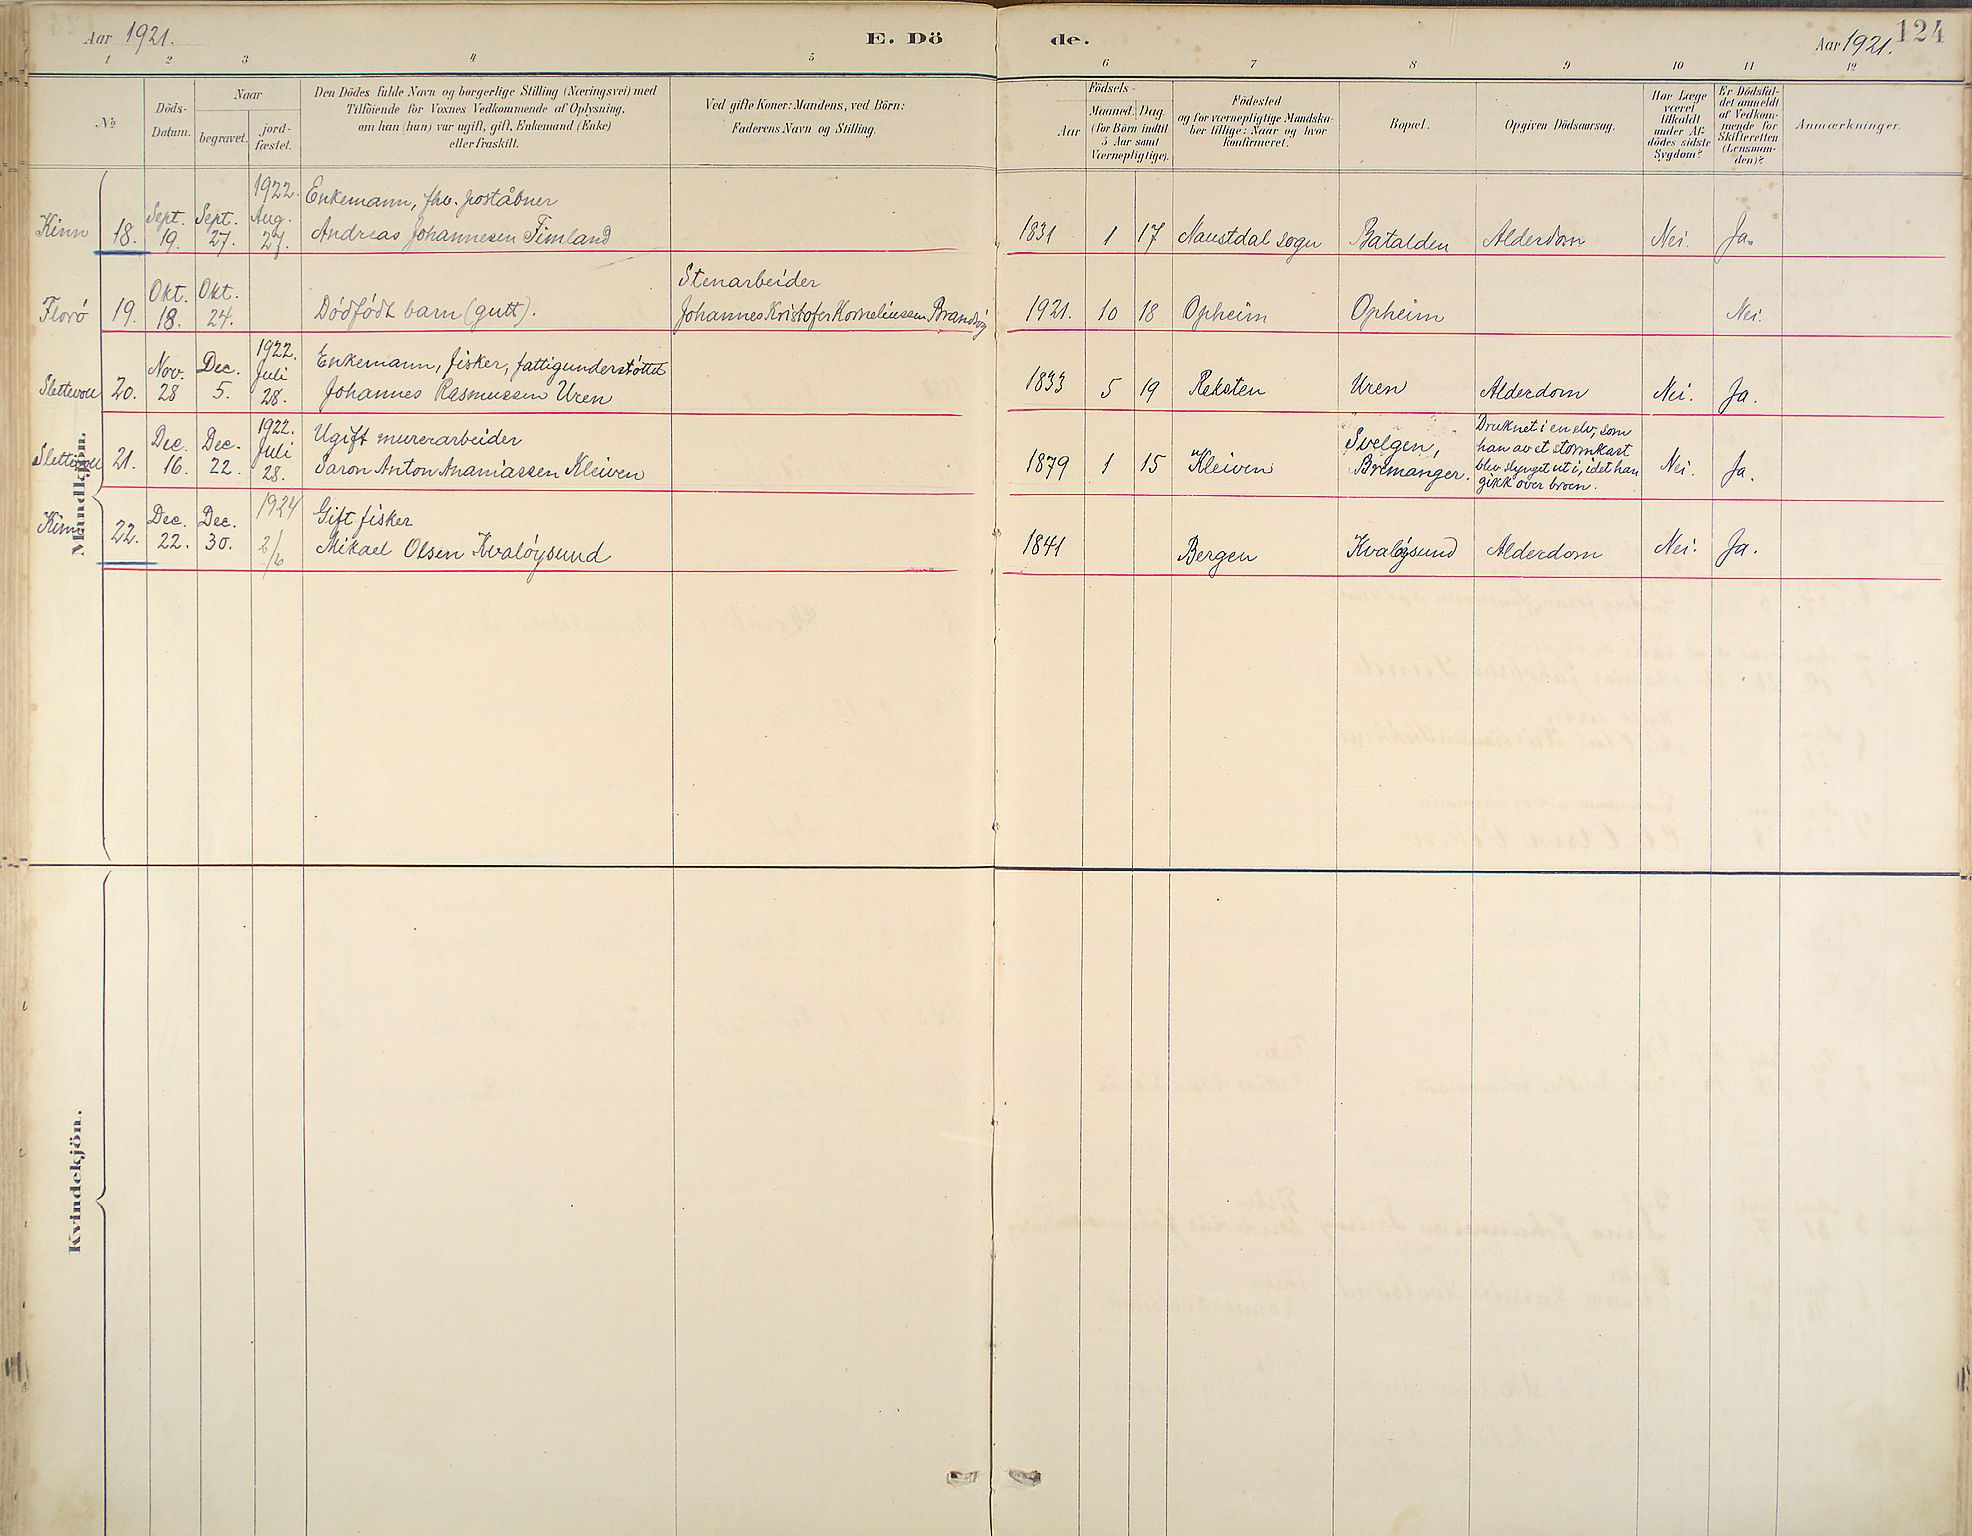 Aar 1921.
E. Dö
de.
Aar 1921.
124
1 2 3 4 5 6 7 8 9 10 11 12
№
Döds-
Datum.
Naar
begravet.
jord-
fæstet.
Den Dödes fulde Navn og borgerlige Stilling (Næringsvei) med
Tilföiende for Voxnes Vedkommende af Oplysning,
om han (hun) var ugift, gift, Enkemand (Enke)
eller fraskilt.
Ved gifte Koner: Mandens, ved Börn:
Faderens Navn og Stilling.
Födsels-
Aar
Maaned.
Dag.
(for Börn indtil
5 Aar samt
Værnepligtige).
Födested
og for værnepligtige Mandska-
ber tillige: Naar og hvor
konfirmeret.
Bopæl.
Opgiven Dödsaarsag.
Har Læge
været
tilkaldt
under Af-
dödes sidste
Sygdom?
Er Dödsfal-
det anmeldt
af Vedkom-
mende for
Skifteretten
(Lensman-
den)?
Anmærkninger.
Mandkjön.
Kinn 18. Sept. 19. Sept. 27. 1922. Aug. 27. Enkemann, fhv. poståbner
Andreas Johannesen Timland 1831 1 17 Naustdal sogn Batalden Alderdom Nei. Ja.
Florö 19. Okt. 18. Okt. 24. Dödfödt barn (gutt). Stenarbeider
Johannes Kristofer Korneliussen Brandsöy 1921. 10 18 Opheim Opheim Nei.
Slettevoll 20. Nov. 28 Dec. 5. 1922. Juli 28. Enkemann, fisker, fattigunderstöttet
Johannes Rasmussen Uren 1833 5 19 Reksten Uren Alderdom Nei. Ja.
Slettevoll 21. Dec. 16. Dec. 22. 1922. Juli 28. Ugift murerarbeider
Saron Anton Ananiassen Kleiven 1879 1 15 Kleiven Svelgen,
Bremanger. Druknet i en elv, som
han av et stormkast
blev slynget ut i, idet han
gikk over broen. Nei. Ja.
Kinn 22. Dec. 22. Dec. 30. 1924 2/6 Gift fisker
Mikael Olsen Kvalöysund 1841 Bergen Kvalöysund Alderdom Nei. Ja.
Kvindekjön.